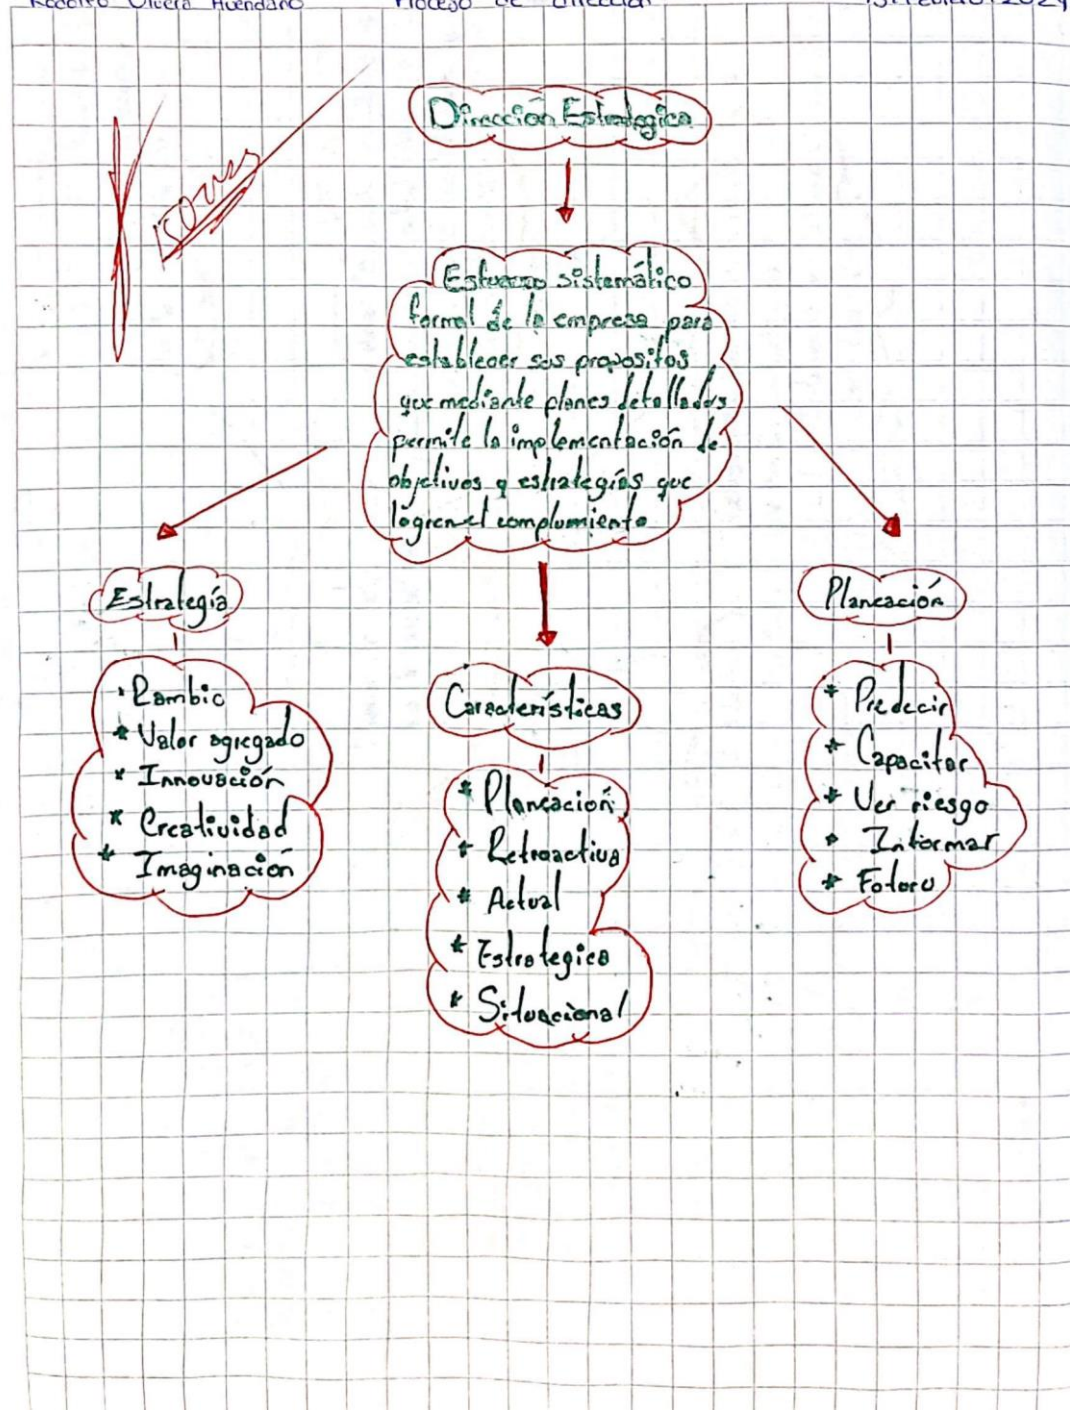 Proceso de Dirección
Dirección Estrategica
Esfuerzo sistemático
formal de la empresa para
establecer sus propositos
que mediante planes detallados
permite la implementación de
objetivos y estrategías que
logren el complumiento
Estrategía
Planeación
· Cambio
* Valor agregado
* Innovación
* Creatividad
* Imaginación
Características
* Planeación
* Retroactiva
* Actual
* Estrategico
* Situacional
* Predecir
* Capacitar
* Ver riesgo
* Informar
* Futuro